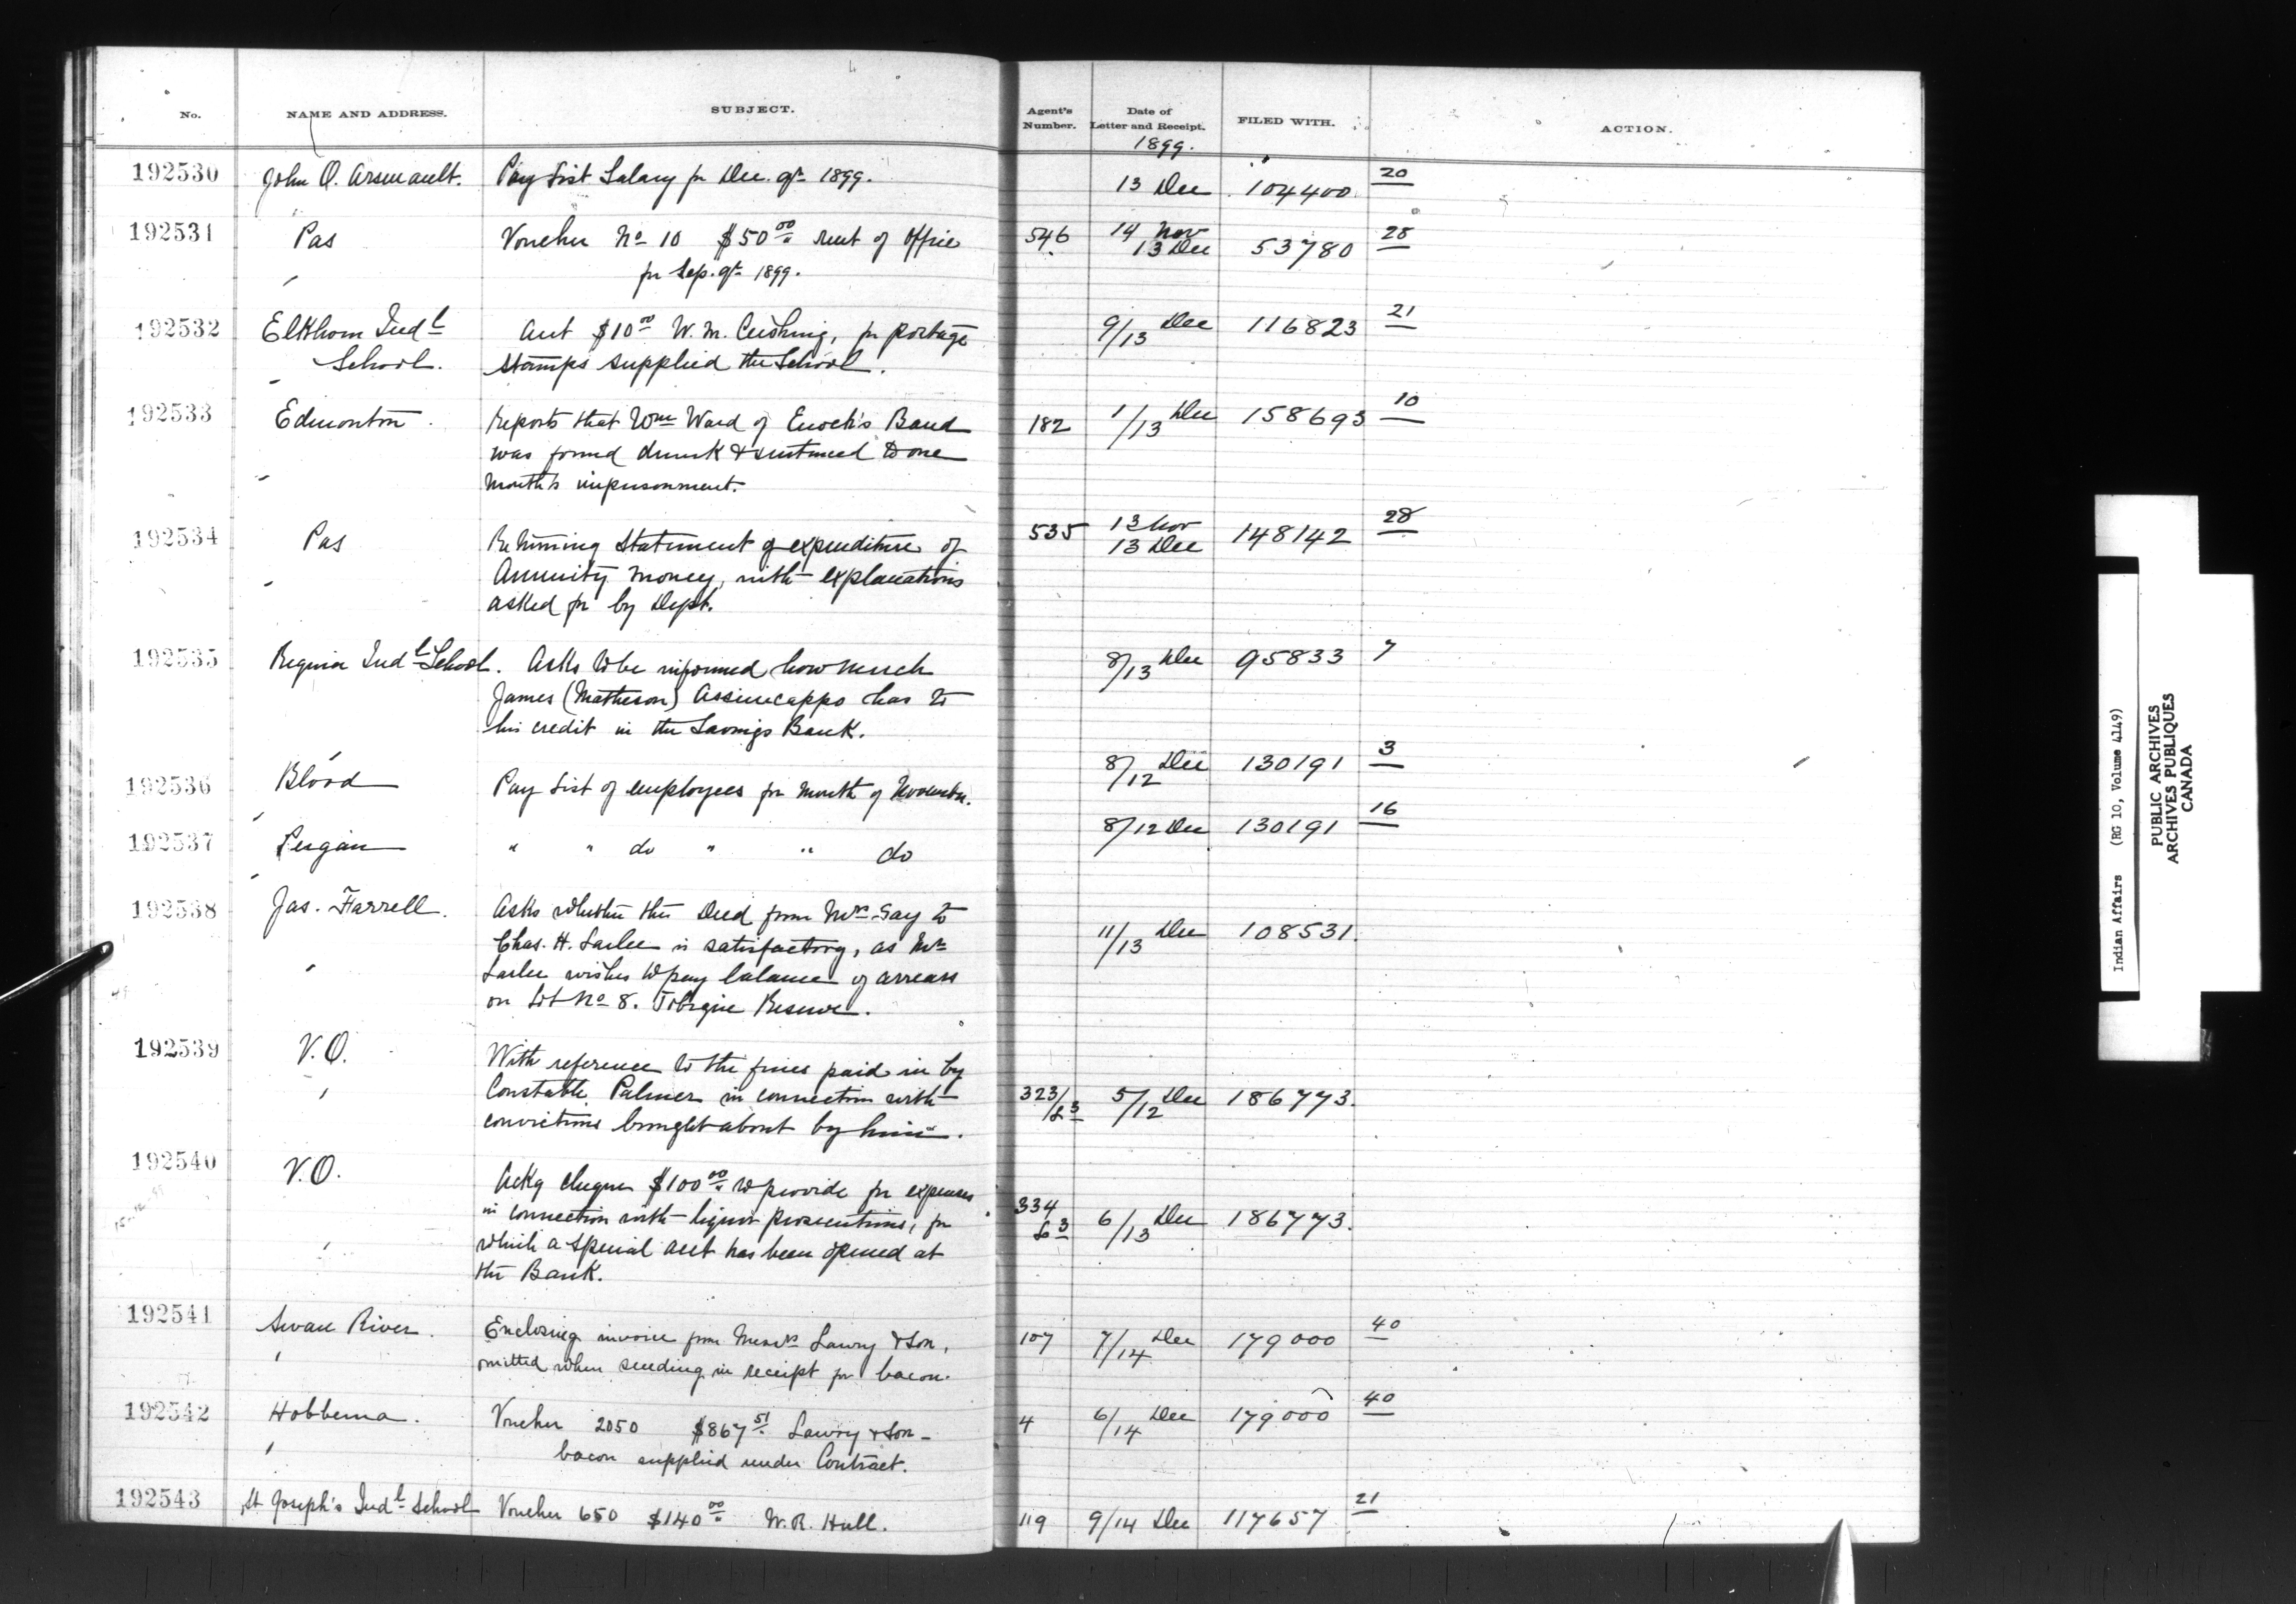 No. NAME AND ADDRESS. SUBJECT. Agent's Number. Date of Letter and Receipt. FILED WITH. ACTION.
1899.
192530 John O. Arsenault. Pay List Salary for Dec. qr 1899. 13 Dec 104400 20
192531 Pas Voucher No 10 $50 00 rent of office 546 14 Nov 13 Dec 53780 28
for Sep. qr 1899.
192532 Elkhorn Indl Acct $10 00 W. M. Cushing, for postage 9/13 Dec 116823 21
School. stamps supplied the School.
192533 Edmonton. Reports that Wm Ward of Enoch's Band 182 1/13 Dec 158693 10
was found drunk & sentenced to one
month's imprisonment.
192534 Pas Returning Statement of expenditure of 535 13 Nov 13 Dec 148142 28
Annuity Money, with explanations
asked for by Dept.
192535 Regina Indl School. Asks to be informed how much 8/13 Dec 95833 7
James (Matheson) Assinecappo has to
his credit in the Savings Bank.
192536 Blood Pay List of employees for month of November. 8/12 Dec 130191 3
192537 Peigan " " do " " do 8/12 Dec 130191 16
192538 Jas. Farrell. Asks whether the Deed from Mrs Gay to 11/13 Dec 108531.
Chas. H. Larlee is satisfactory, as Mr
Larlee wishes to pay balance of arrears
on Lot No 8. Tobique Reserve.
192539 V.O. With reference to the fines paid in by
Constable Palmer in connection with 323/L3 5/12 Dec 186773.
convictions brought about by him.
192540 V.O. Ackg cheque $100 00 to provide for expenses
in connection with liquor prosecutions, for 334 L3 6/13 Dec 186773.
which a special acct has been opened at
the Bank.
192541 Swan River. Enclosing invoice from Messrs Lawry & Son, 107 7/14 Dec 179000 40
omitted when sending in receipt for bacon.
192542 Hobbema. Voucher 2050 $867 51 Lawry & Son - 4 6/14 Dec 179000 40
bacon supplied under Contract.
192543 St Joseph's Indl School Voucher 650 $140 00 W. R. Hull. 119 9/14 Dec 117657 21
Indian Affairs (RG 10, Volume 4149)
PUBLIC ARCHIVES
ARCHIVES PUBLIQUES
CANADA